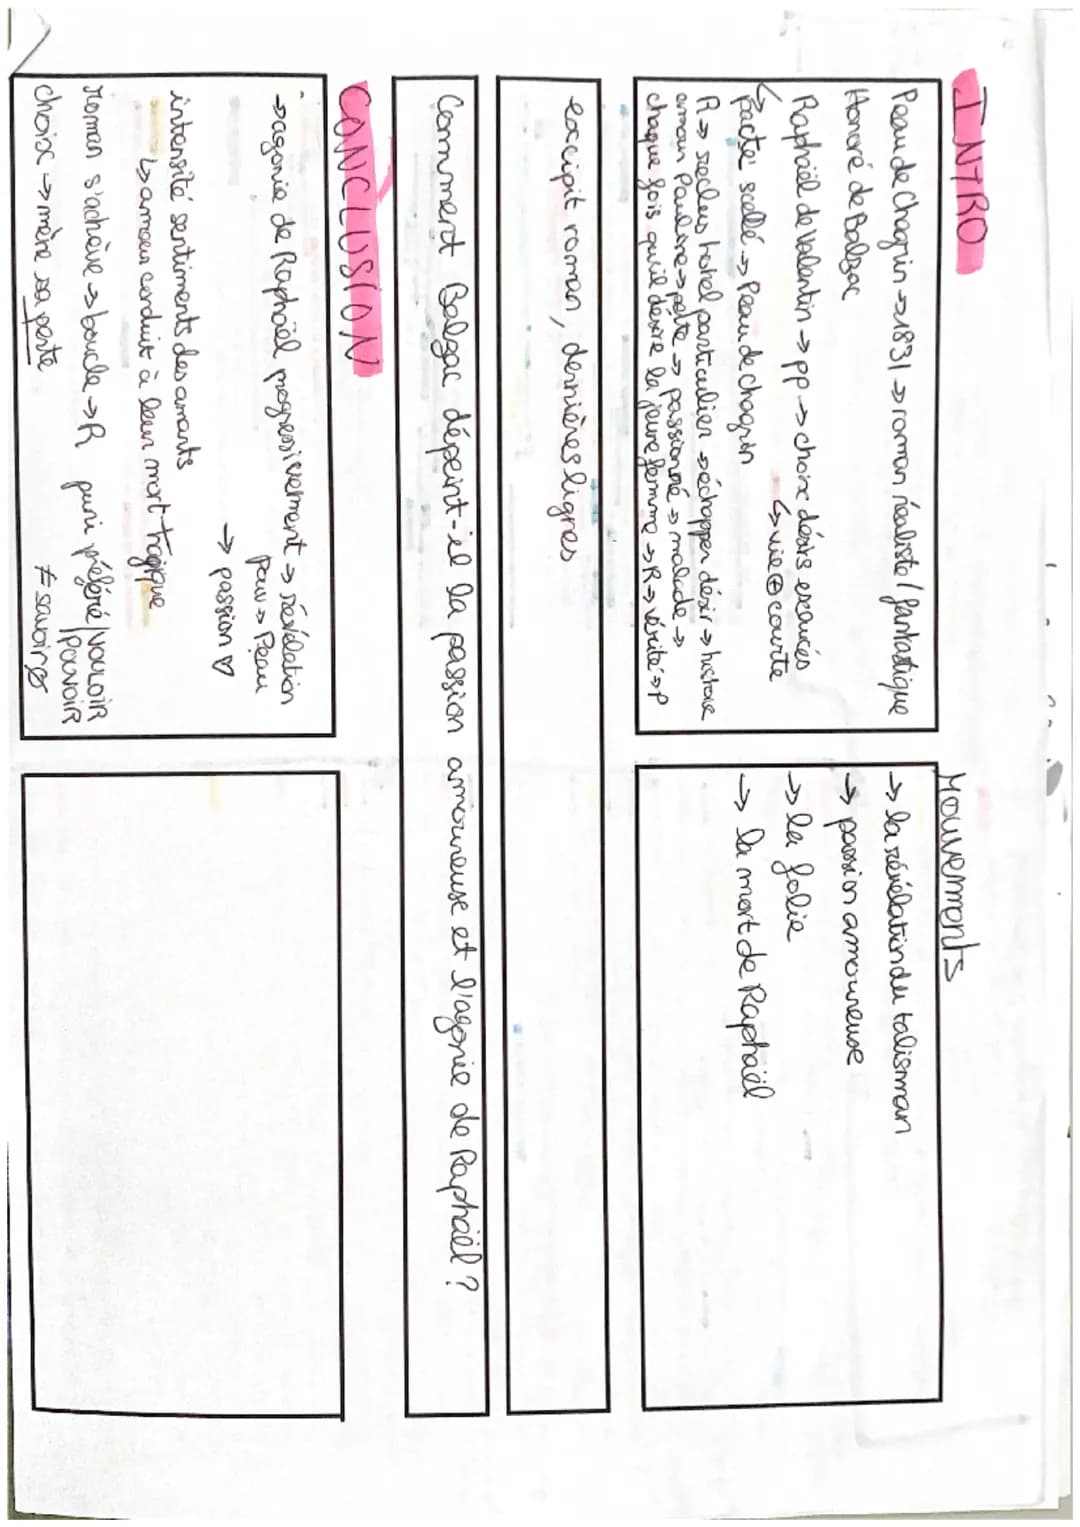 INTRO
Peau de Chagrin → 1831 → roman réaliste / fantastique
Honoré de Balzac
Raphaël de Valentin → pp → choix désirs exaucés
↳ vie ⊕ courte
↳ pacte scellé → Peau de chagrin
R → reclus hotel particulier → échapper désir → histoire
amour Pauline → perte → passionné → malade →
chaque fois qu'il désire la jeune femme → R → vérité → P
Mouvements
→ la révélation du talisman
→ passion amoureuse
→ la folie
→ la mort de Raphaël
excipit roman, dernières lignes
Comment Balzac dépeint-il la passion amoureuse et l'agonie de Raphaël ?
CONCLUSION
→ agonie de Raphaël progressivement → révélation
pouv → Peau
→ passion ♡
intensité sentiments des amants
↳ amour conduit à leur mort tragique
roman s'achève → boucle → R puni préféré VOULOIR
POUVOIR
choix → mène sa perte ≠ savoirs